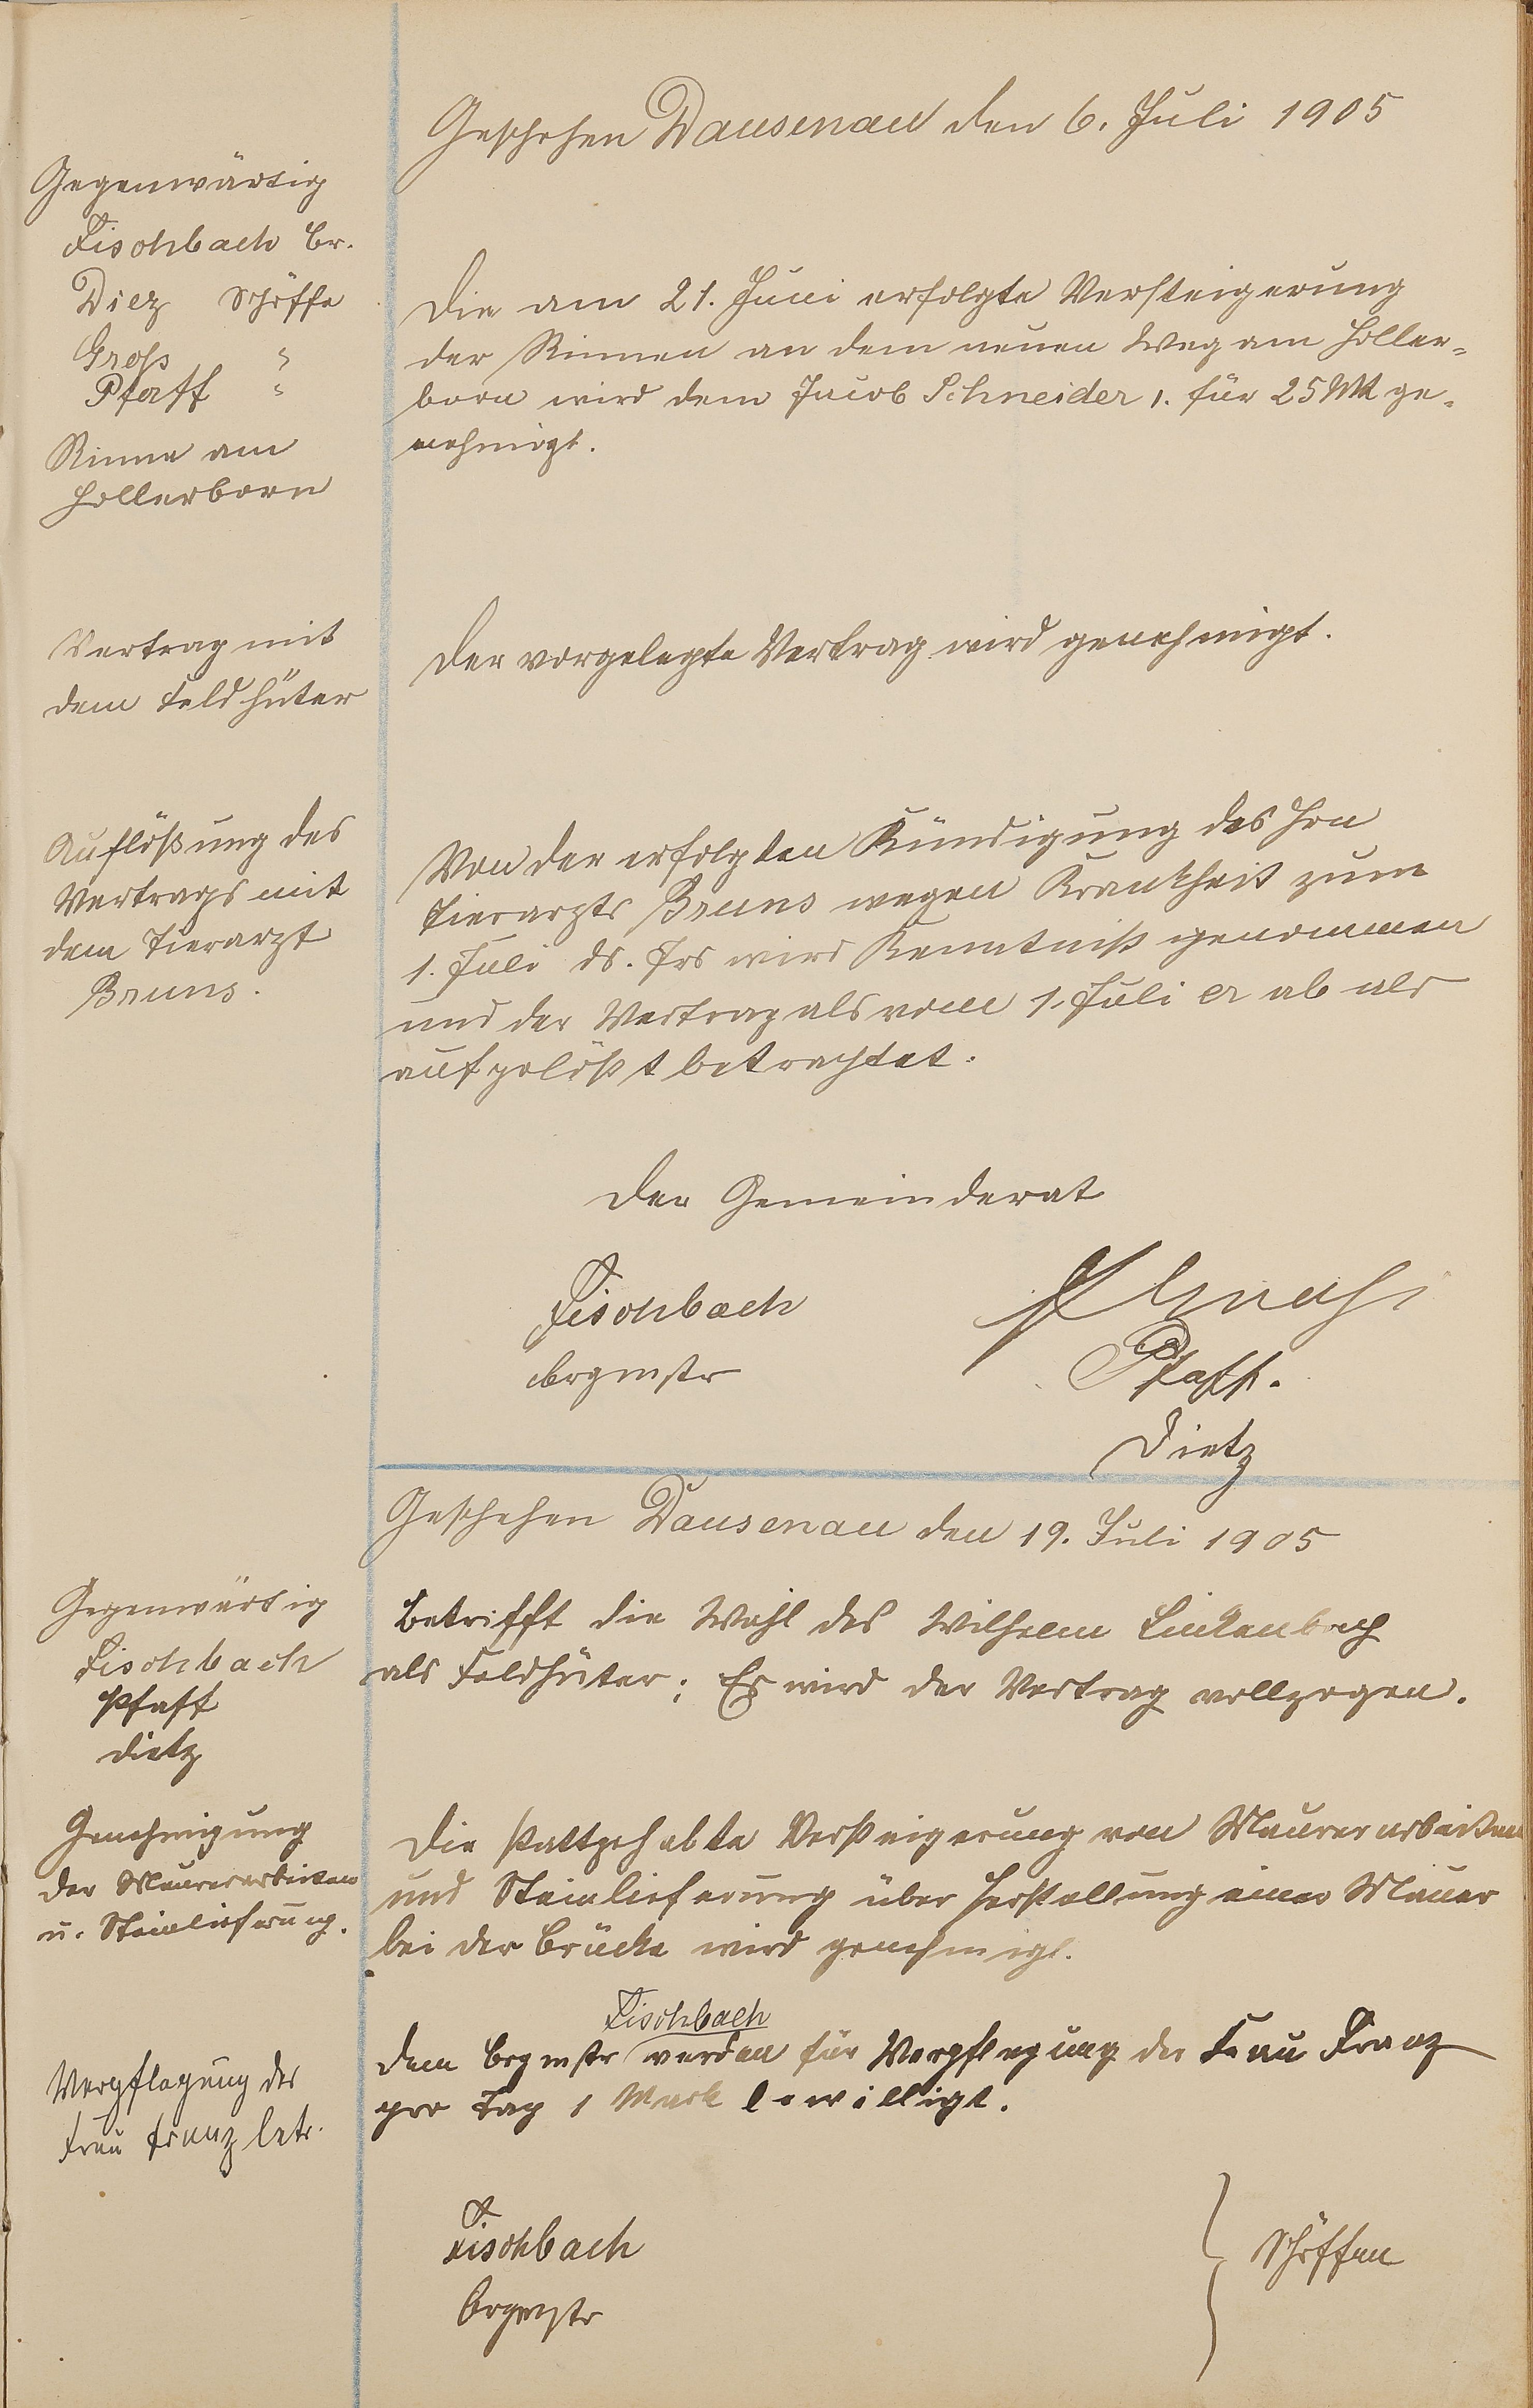 Geschehen Dausenau den 6. Juli 1905
Gegenwärtig
Fischbach Br.
Diez Schöffe
Groß "
Pfaff "
Rinne am
Hollerborn
Die am 21. Juni erfolgte Versteigerung
der Rinnen an dem neuen Weg am Holler-
born wird dem Jacob Schneider 1. für 25 Mk ge-
nehmigt.
Vertrag mit
dem Feldhüter
Der vorgelegte Vertrag wird genehmigt.
Auflößung des
Vertrags mit
dem Tierarzt
Bruns.
Von der erfolgten Kündigung des Hrn
Tierarzts Bruns wegen Krankheit zum
1. Juli ds. Jrs wird Kenntniß genommen
und der Vertrag als vom 1. Juli cr ab als
aufgelößt betrachtet.
Der Gemeinderat
Fischbach
Brgmstr
Pfaff.
Dietz
Geschehen Dausenau den 19. Juli 1905
Gegenwärtig
Fischbach
Pfaff
Dietz
Betrifft die Wahl des Wilhelm Linkenbach
als Feldhüter; Es wird der Vertrag vollzogen.
Genehmigung
der Maurerarbeiten
u. Steinlieferung.
Die stattgehabte Versteigerung von Maurerarbeiten
und Steinlieferung über Herstellung einer Mauer
bei der Brücke wird genehmigt.
Verpflegung der
Frau Franz betr.
Fischbach
Dem Brgmstr werden für Verpflegung der Frau Franz
pro Tag 1 Mark bewilligt.
Fischbach
Brgmstr
Schöffen